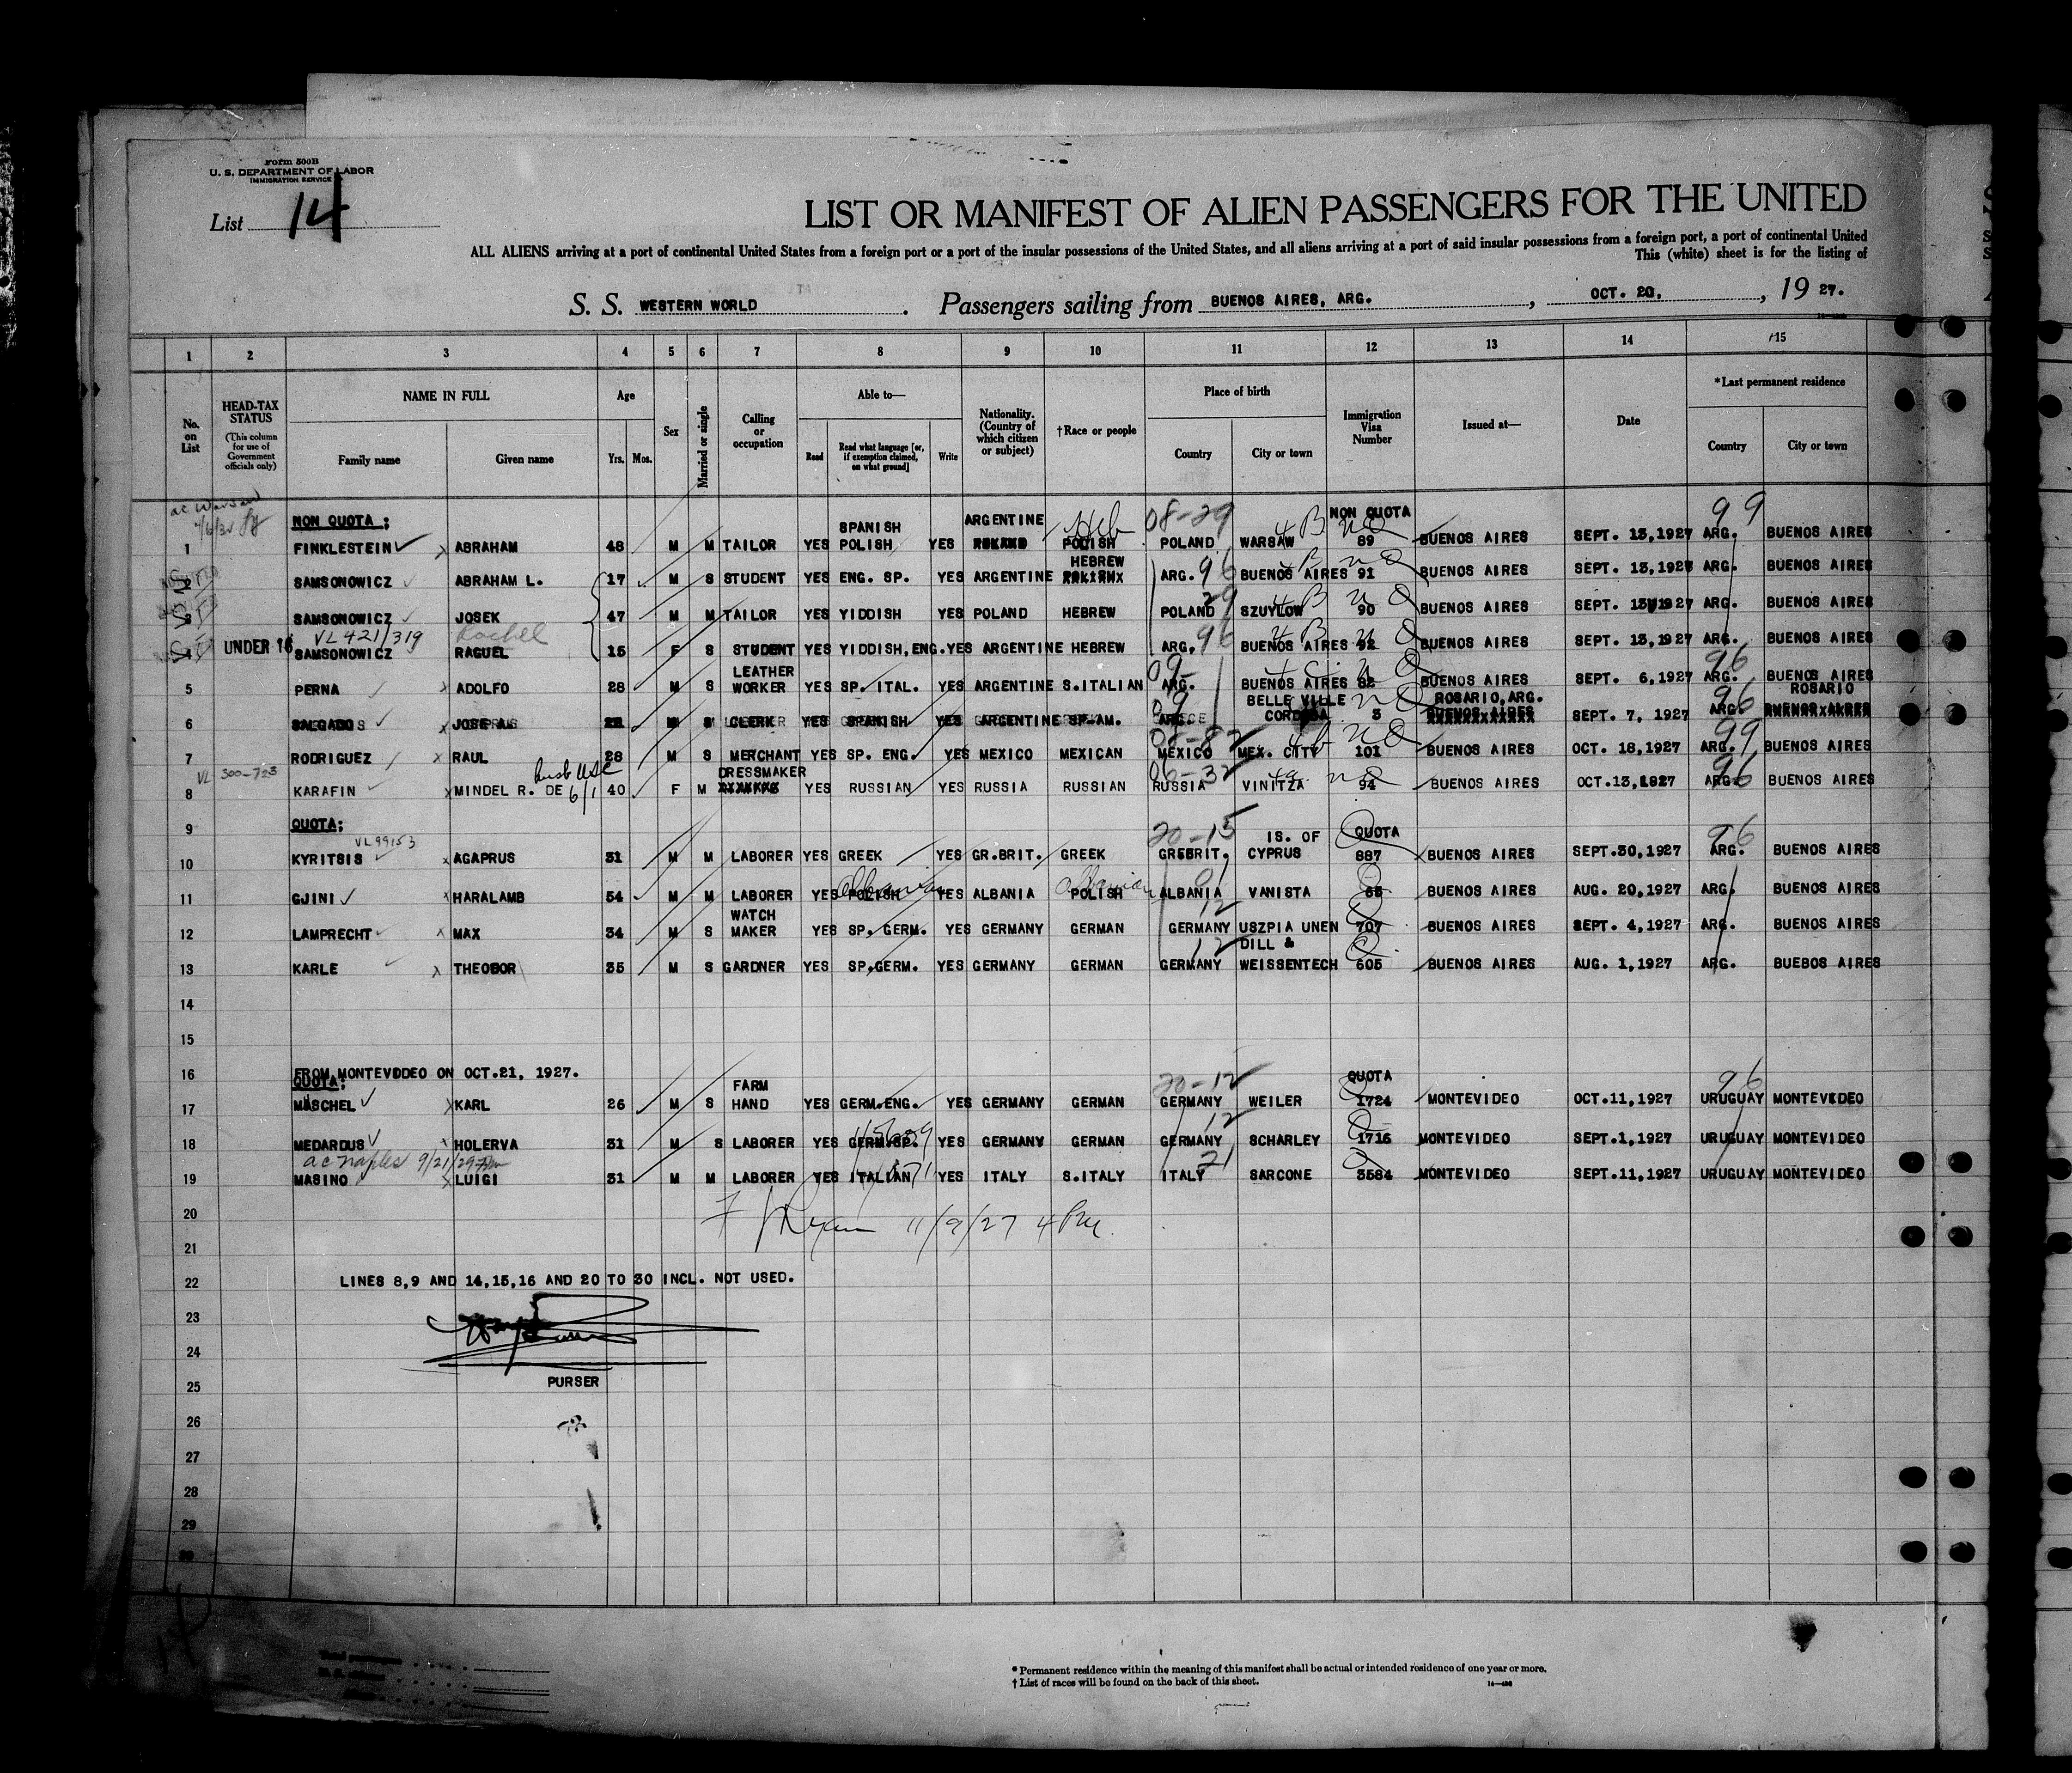 Form 500B
U. S. DEPARTMENT OF LABOR
IMMIGRATION SERVICE
List 14
LIST OR MANIFEST OF ALIEN PASSENGERS FOR THE UNITED
ALL ALIENS arriving at a port of continental United States from a foreign port or a port of the insular possessions of the United States, and all aliens arriving at a port of said insular possessions from a foreign port, a port of continental United
This (white) sheet is for the listing of
S. S. WESTERN WORLD . Passengers sailing from BUENOS AIRES, ARG. , OCT. 20, , 19 27.
1 2 3 4 5 6 7 8 9 10 11 12 13 14 15
No. on List
HEAD-TAX STATUS (This column for use of Government officials only)
NAME IN FULL
Family name Given name
Age
Yrs. Mos.
Sex
Married or single
Calling or occupation
Able to—
Read Read what language [or, if exemption claimed, on what ground] Write
Nationality. (Country of which citizen or subject)
†Race or people
Place of birth
Country City or town
Immigration Visa Number
Issued at—
Date
*Last permanent residence
Country City or town
ac Warsaw
NON QUOTA ; SPANISH ARGENTINE Heb 08-29 4 B NON QUOTA 99
1 FINKLESTEIN ABRAHAM 48 M M TAILOR YES POLISH YES POLISH POLAND WARSAW 89 BUENOS AIRES SEPT. 13,1927 ARG. BUENOS AIRES
HEBREW
2 SAMSONOWICZ ABRAHAM L. 17 M S STUDENT YES ENG. SP. YES ARGENTINE ARG. 96 BUENOS AIRES 91 BUENOS AIRES SEPT. 13,1927 ARG. BUENOS AIRES
3 SAMSONOWICZ JOSEK 47 M M TAILOR YES YIDDISH YES POLAND HEBREW POLAND 29 SZUYLOW 90 BUENOS AIRES SEPT. 13,1927 ARG. BUENOS AIRES
VL 421/319 Rachel
4 UNDER 16 SAMSONOWICZ RAGUEL 15 F S STUDENT YES YIDDISH,ENG. YES ARGENTINE HEBREW ARG. 96 BUENOS AIRES 92 BUENOS AIRES SEPT. 13,1927 ARG. BUENOS AIRES
LEATHER 96
5 PERNA ADOLFO 28 M S WORKER YES SP. ITAL. YES ARGENTINE S.ITALIAN ARG. BUENOS AIRES 82 BUENOS AIRES SEPT. 6,1927 ARG. BUENOS AIRES
BELLE VILLE ROSARIO,ARG. 96 ROSARIO
6 SALGADO JOSE 22 M S CLERK YES SPANISH YES ARGENTINE SP-AM. CORDOBA 3 BUENOS AIRES SEPT. 7, 1927 ARG.
08-82 99
7 RODRIGUEZ RAUL 28 M S MERCHANT YES SP. ENG. YES MEXICO MEXICAN MEXICO MEX. CITY 101 BUENOS AIRES OCT. 18,1927 ARG. BUENOS AIRES
VL 300-723 DRESSMAKER 06-32 96
8 KARAFIN MINDEL R. DE 6/1 40 F M YES RUSSIAN YES RUSSIA RUSSIAN RUSSIA VINITZA 94 BUENOS AIRES OCT.13,1927 ARG. BUENOS AIRES
9 QUOTA;
VL 99153 20-15 IS. OF QUOTA 96
10 KYRITSIS AGAPRUS 31 M M LABORER YES GREEK YES GR.BRIT. GREEK GREBRIT. CYPRUS 887 BUENOS AIRES SEPT.30,1927 ARG. BUENOS AIRES
Albanian Albanian 01
11 GJINI HARALAMB 54 M M LABORER YES POLISH YES ALBANIA POLISH ALBANIA VANISTA 65 BUENOS AIRES AUG. 20,1927 ARG. BUENOS AIRES
WATCH 12
12 LAMPRECHT MAX 34 M S MAKER YES SP. GERM. YES GERMANY GERMAN GERMANY USZPIA UNEN 707 BUENOS AIRES SEPT. 4,1927 ARG. BUENOS AIRES
12 DILL &
13 KARLE THEODOR 35 M S GARDNER YES SP,GERM. YES GERMANY GERMAN GERMANY WEISSENTECH 605 BUENOS AIRES AUG. 1,1927 ARG. BUEBOS AIRES
14
15
16 FROM MONTEVIDEO ON OCT.21, 1927.
QUOTA; FARM 20-12 QUOTA 96
17 MASCHEL KARL 26 M S HAND YES GERM.ENG. YES GERMANY GERMAN GERMANY WEILER 1724 MONTEVIDEO OCT.11,1927 URUGUAY MONTEVIDEO
12
18 MEDARDUS HOLERVA 31 M S LABORER YES GERM.SP. YES GERMANY GERMAN GERMANY SCHARLEY 1716 MONTEVIDEO SEPT.1,1927 URUGUAY MONTEVIDEO
ac Naples 9/21/29 21
19 MASINO LUIGI 31 M M LABORER YES ITALIAN YES ITALY S.ITALY ITALY SARCONE 3584 MONTEVIDEO SEPT.11,1927 URUGUAY MONTEVIDEO
20 Ryan 11/9/27 4 PM.
21
22 LINES 8,9 AND 14,15,16 AND 20 TO 30 INCL. NOT USED.
23
24
25 PURSER
26
27
28
29
30
*Permanent residence within the meaning of this manifest shall be actual or intended residence of one year or more.
†List of races will be found on the back of this sheet.